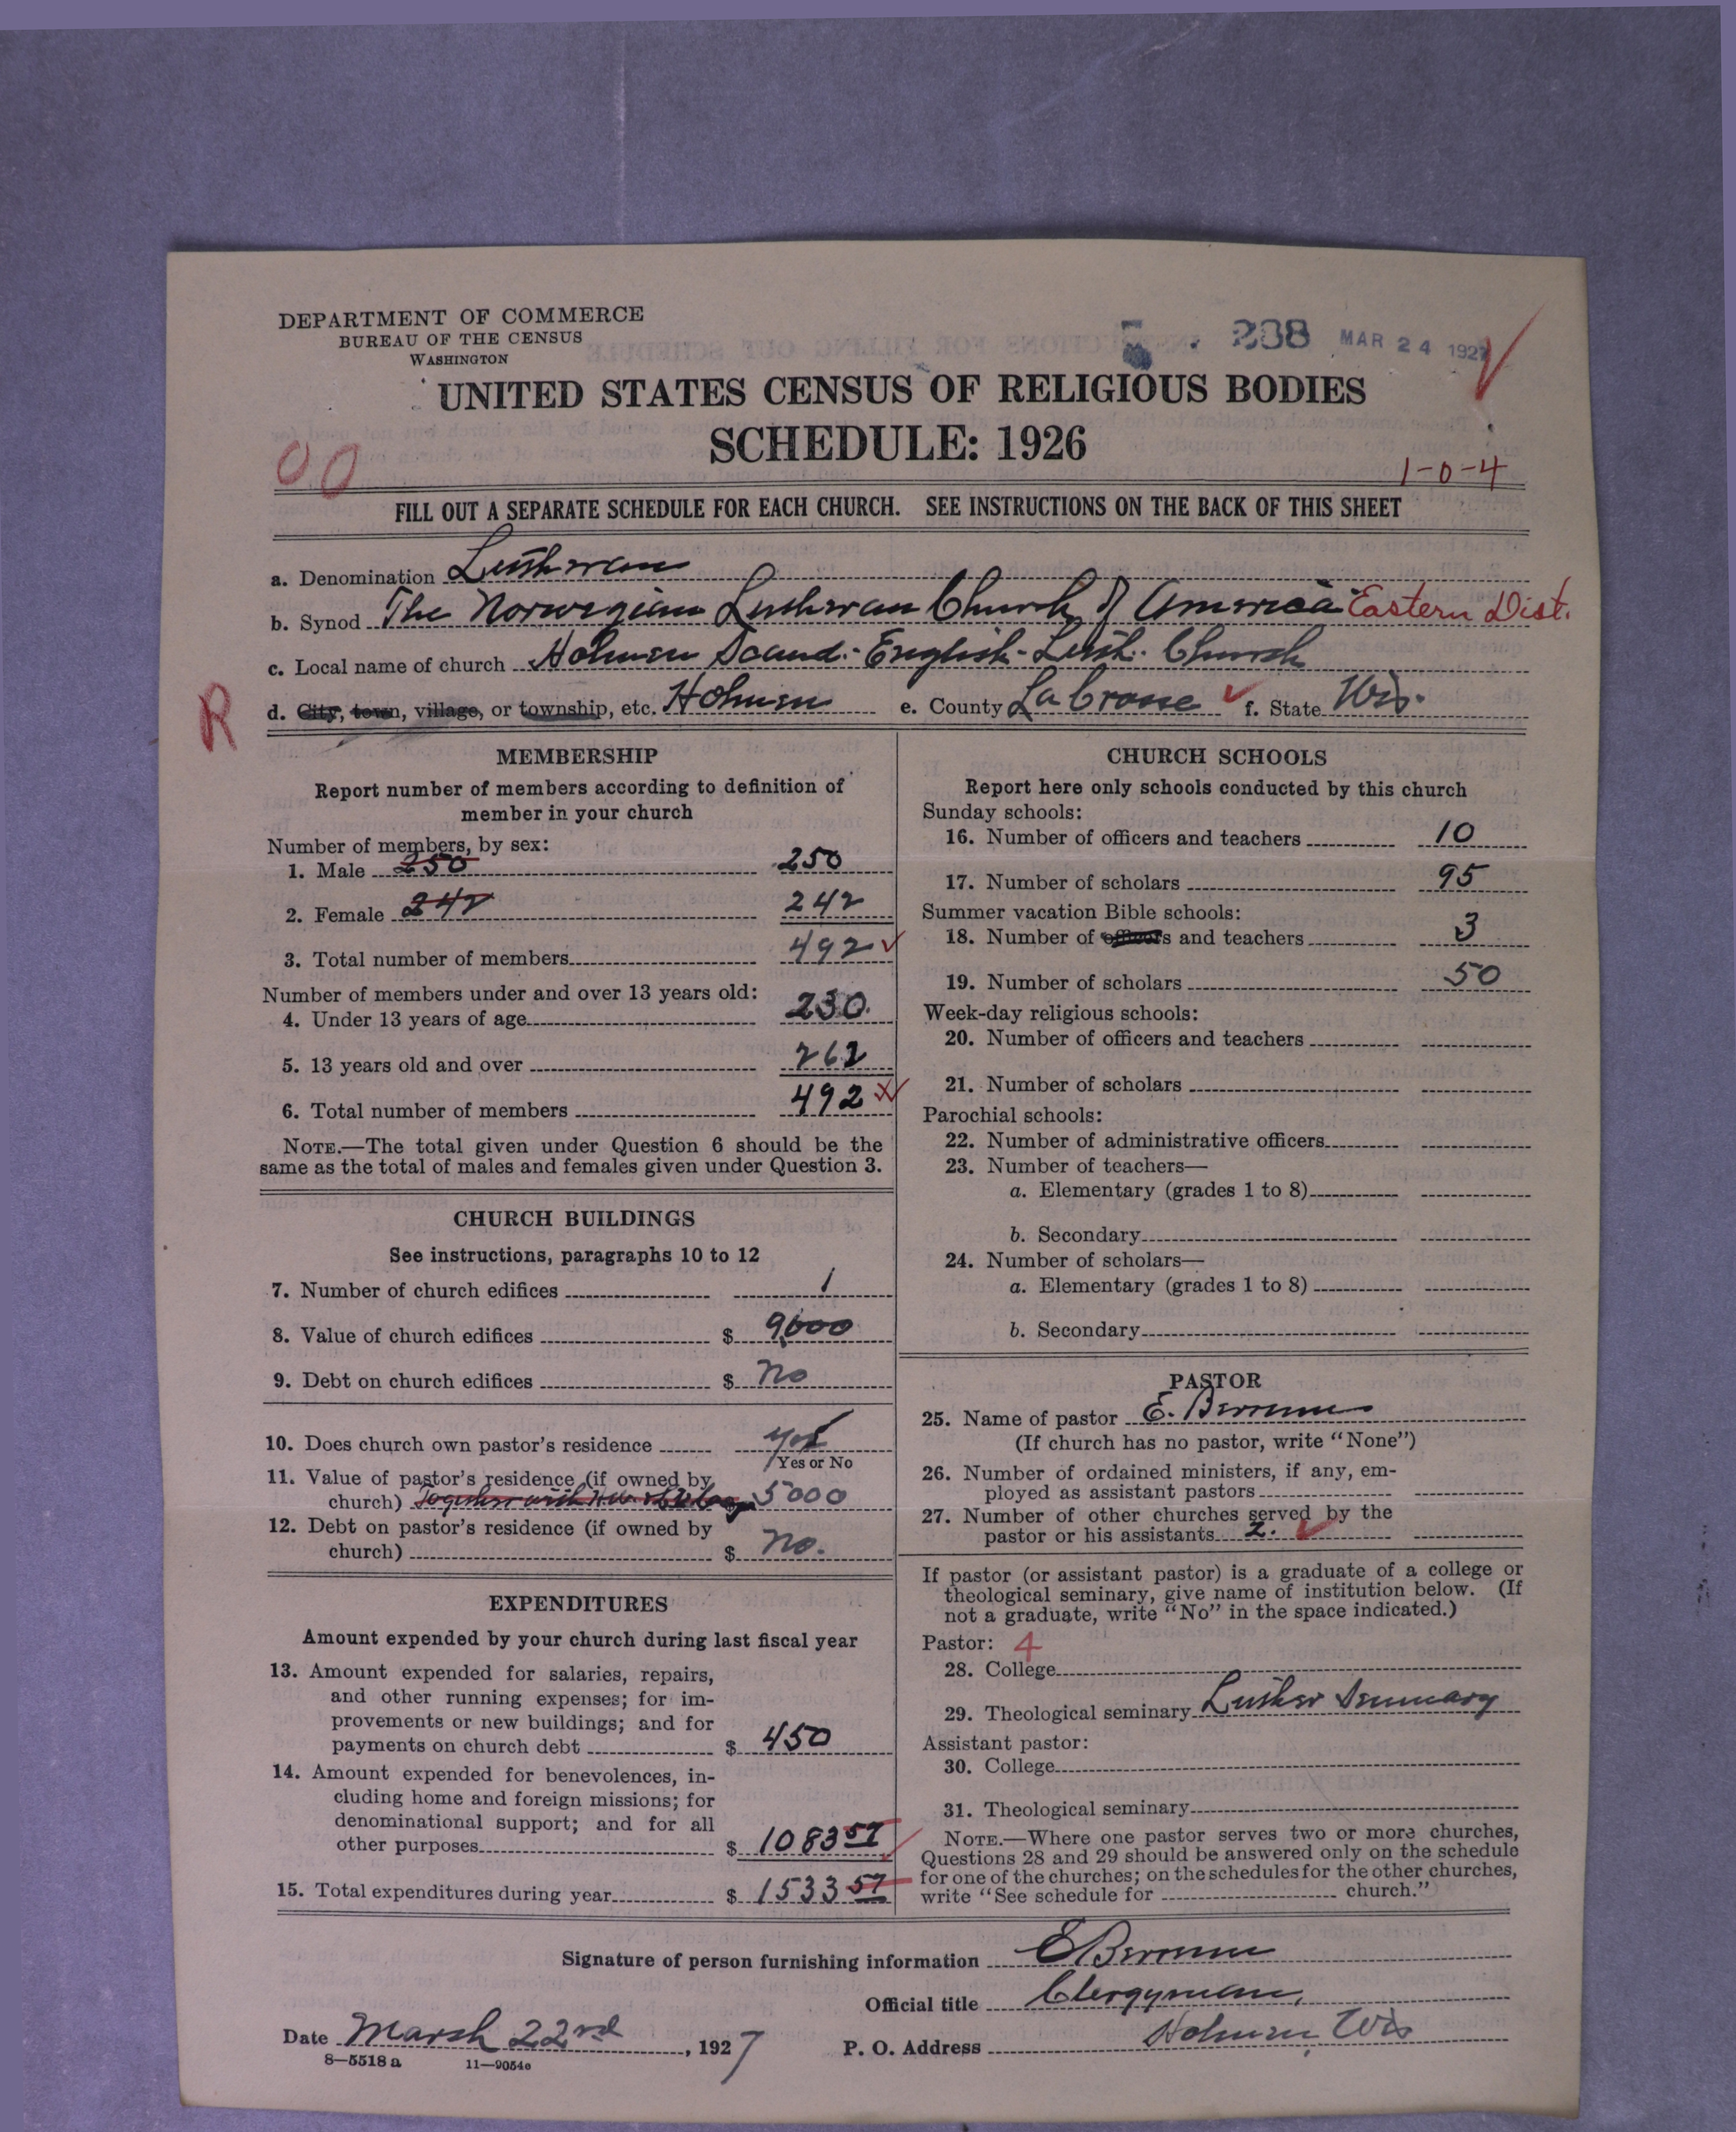 DEPARTMENT OF COMMERCE
BUREAU OF THE CENSUS
WASHINGTON
5 . 238 MAR 24 1927
UNITED STATES CENSUS OF RELIGIOUS BODIES
SCHEDULE: 1926
00
1-0-4
FILL OUT A SEPARATE SCHEDULE FOR EACH CHURCH. SEE INSTRUCTIONS ON THE BACK OF THIS SHEET
a. Denomination Lutheran
b. Synod The Norwegian Lutheran Church of America Eastern Dist.
c. Local name of church Holmen Scand.-English-Luth. Church
R
d. City, town, village, or township, etc. Holmen e. County La Crosse f. State Wis.
MEMBERSHIP
Report number of members according to definition of
member in your church
Number of members, by sex:
1. Male 250 250
2. Female 242 242
3. Total number of members 492
Number of members under and over 13 years old:
4. Under 13 years of age 230
5. 13 years old and over 262
6. Total number of members 492
NOTE.—The total given under Question 6 should be the
same as the total of males and females given under Question 3.
CHURCH BUILDINGS
See instructions, paragraphs 10 to 12
7. Number of church edifices 1
8. Value of church edifices $ 9,000
9. Debt on church edifices $ no
10. Does church own pastor's residence yes
Yes or No
11. Value of pastor's residence (if owned by
church) Together with 5000
12. Debt on pastor's residence (if owned by
church) $ no.
EXPENDITURES
Amount expended by your church during last fiscal year
13. Amount expended for salaries, repairs,
and other running expenses; for im-
provements or new buildings; and for
payments on church debt $ 450
14. Amount expended for benevolences, in-
cluding home and foreign missions; for
denominational support; and for all
other purposes $ 1083 57
15. Total expenditures during year $ 1533 57
CHURCH SCHOOLS
Report here only schools conducted by this church
Sunday schools:
16. Number of officers and teachers 10
17. Number of scholars 95
Summer vacation Bible schools:
18. Number of officers and teachers 3
19. Number of scholars 50
Week-day religious schools:
20. Number of officers and teachers
21. Number of scholars
Parochial schools:
22. Number of administrative officers
23. Number of teachers—
a. Elementary (grades 1 to 8)
b. Secondary
24. Number of scholars—
a. Elementary (grades 1 to 8)
b. Secondary
PASTOR
25. Name of pastor E.
(If church has no pastor, write "None")
26. Number of ordained ministers, if any, em-
ployed as assistant pastors
27. Number of other churches served by the
pastor or his assistants 2.
If pastor (or assistant pastor) is a graduate of a college or
theological seminary, give name of institution below. (If
not a graduate, write "No" in the space indicated.)
Pastor: 4
28. College
29. Theological seminary Luther Seminary
Assistant pastor:
30. College
31. Theological seminary
NOTE.—Where one pastor serves two or more churches,
Questions 28 and 29 should be answered only on the schedule
for one of the churches; on the schedules for the other churches,
write "See schedule for church."
Signature of person furnishing information E
Official title Clergyman,
Date March 22nd, 1927 P. O. Address Holmen Wis
8—5518 a 11—9054c